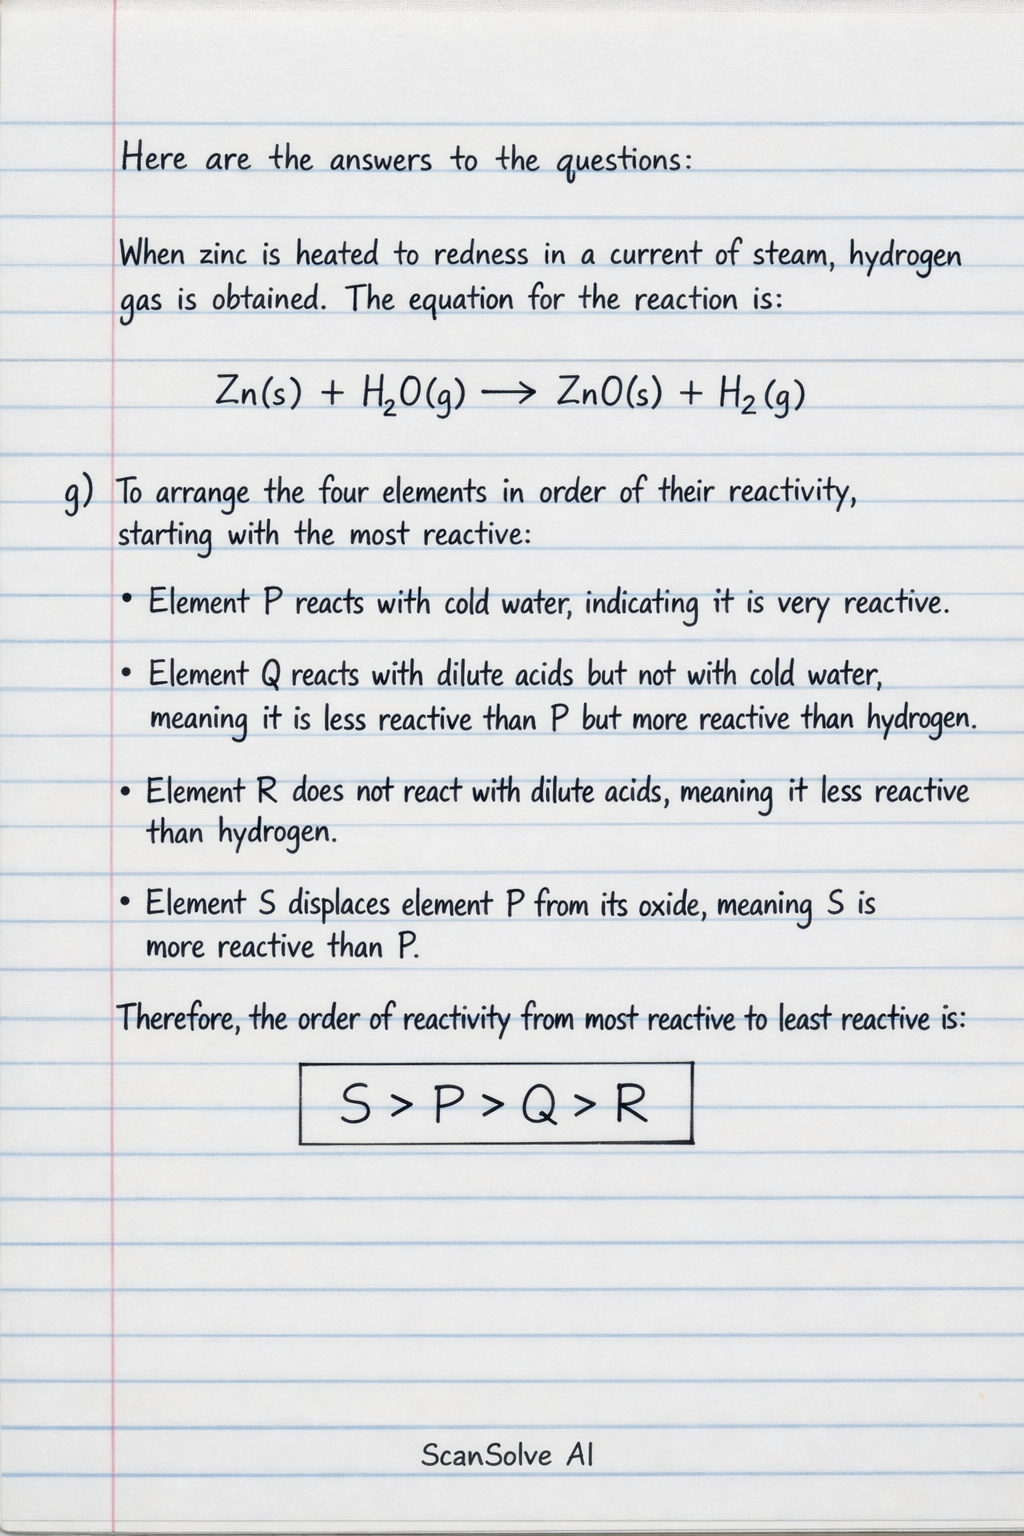 Here are the answers to the questions:
When zinc is heated to redness in a current of steam, hydrogen
gas is obtained. The equation for the reaction is:
Zn(s) + H₂O(g) ⟶ ZnO(s) + H₂(g)
g) To arrange the four elements in order of their reactivity,
starting with the most reactive:
• Element P reacts with cold water, indicating it is very reactive.
• Element Q reacts with dilute acids but not with cold water,
meaning it is less reactive than P but more reactive than hydrogen.
• Element R does not react with dilute acids, meaning it less reactive
than hydrogen.
• Element S displaces element P from its oxide, meaning S is
more reactive than P.
Therefore, the order of reactivity from most reactive to least reactive is:
S > P > Q > R
ScanSolve AI